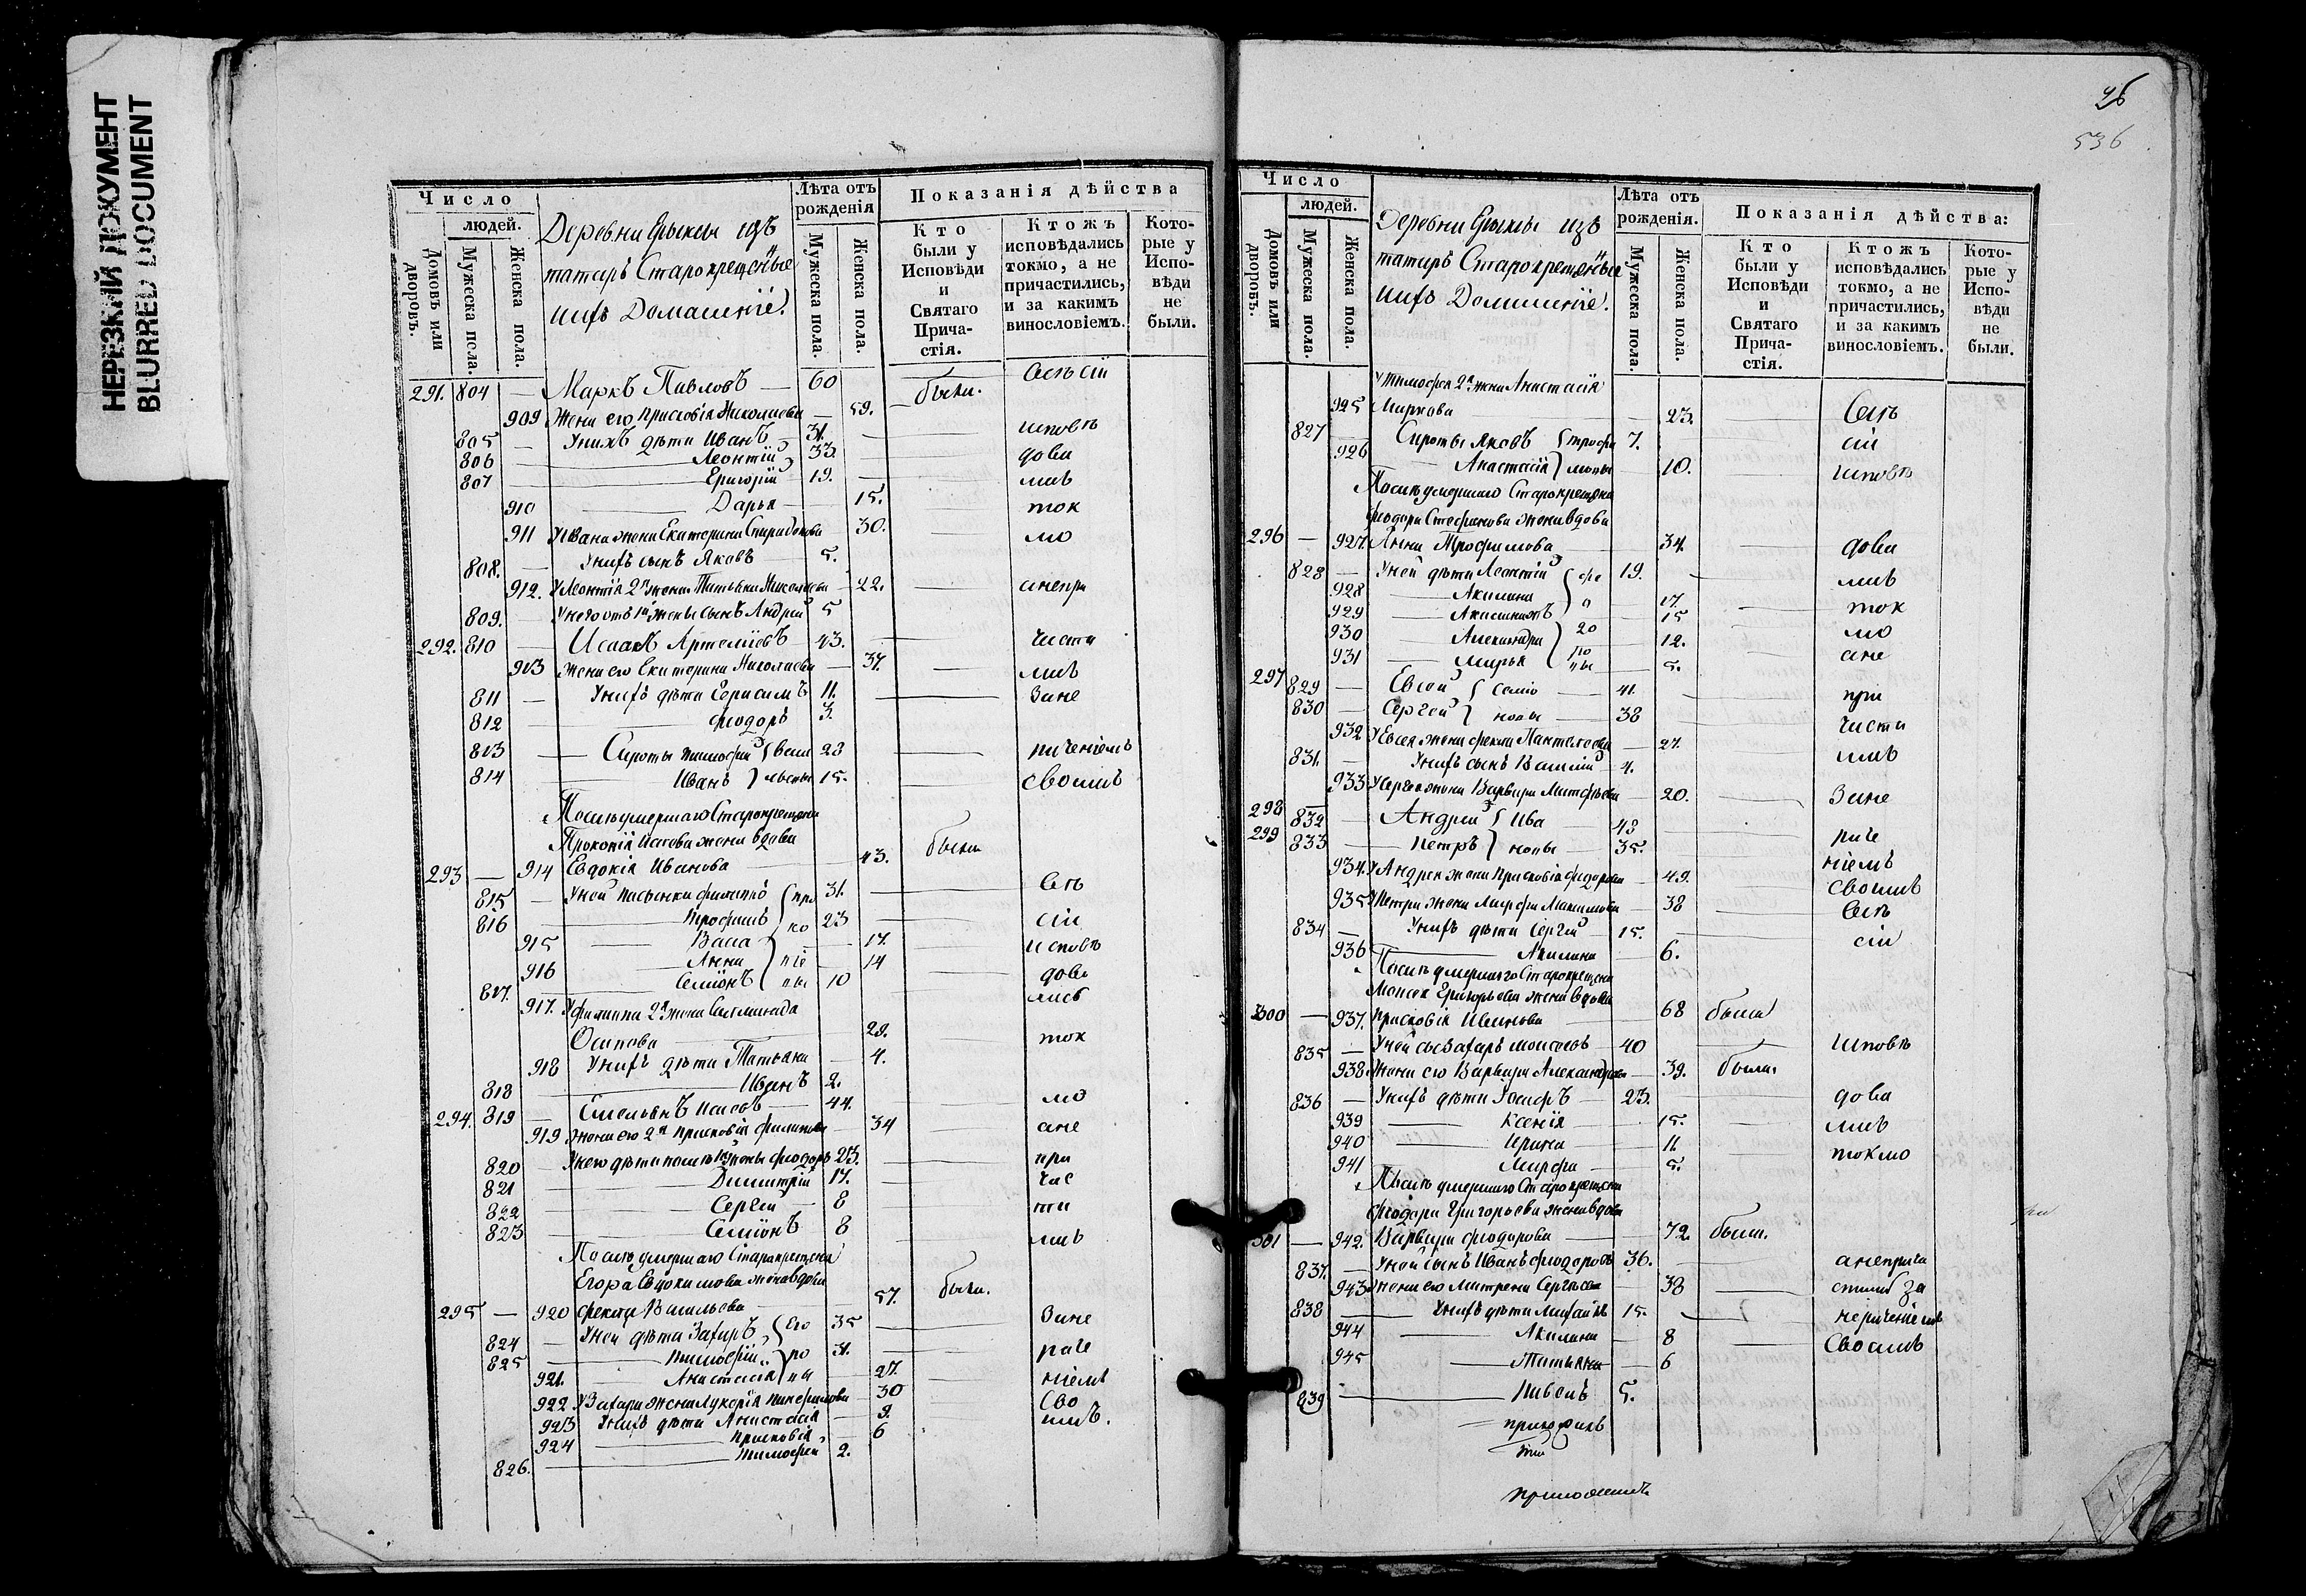 НЕРЕЗКИЙ ДОКУМЕНТ
BLURRED DOCUMENT
Число
людей.
Домовъ или дворовъ.
Мужеска пола.
Женска пола.
Деревни Ерыклы изъ
татаръ Старокрещеные
ихъ Домашніе.
Лѣта отъ рожденія
Мужеска пола.
Женска пола.
Показанія дѣйства
Кто были у Исповѣди и Святаго Причастія.
Ктожъ исповѣдались токмо, а не причастились, и за какимъ винословіемъ.
Которые у Исповѣди не были.
291. 804 — Маркъ Павловъ — 60 были. Всѣ сіи
909 Жена его Прасковія Николаева — 59.
805 — У нихъ дѣти Иванъ 31. исповѣ
806 Леонтій 33 дова
807 Григорій — 19. лись
910 Дарья 15. ток
911 У Ивана жена Екатерина Спиридонова 30. мо
808. — У нихъ сынъ Яковъ 5.
912. У Леонтія 2я жена Татьяна Николаева — 22. а непри
809. У него отъ 1й жены сынъ Андрей 5
292. 810 — Исаакъ Артеміевъ — 43. части
913 Жена его Екатерина Николаева — 37. лись
811 — У нихъ дѣти Герасимъ 11. За не
812 Ѳеодоръ 3.
813 — Сироты Тимофей 23 раченіемъ
814 Иванъ 15. своимъ
Послѣ умершаго Старокрещена
Прокопія Исаева жена вдова
293 — 914 Евдокія Иванова 43. была
815 — У ней пасынки Филиппъ 31. Всѣ
816 Трофимъ 23 сіи
915 Васса 17. исповѣ
916 Анна 14 дова
817. Семіонъ 10 лись
917. У Филиппа 2я жена
Осипова 29. ток
918 У нихъ дѣти Татьяна — 4.
818 Иванъ 2.
294. 819 — Емельянъ Исаевъ 44. мо
919 Жена его 2я Прасковія Филипова 34 а не
820 — У него дѣти послѣ 1й жены Ѳеодоръ 23. при
821 Димитрій 17. час
822 Сергей — 8 ти
823 Семіонъ 8 лись
Послѣ умершаго Старокрещена
Егора Евдокимова жена вдова
295 — 920 Ѳекла Васильева 57. была.
824 — У ней дѣти Захаръ 35 За не
825 Тимофей 31. раче
921. Анастасія 27. ніемъ
922. У Захара жена Лукерія 30 сво
923 У нихъ дѣти Анастасія 9. имъ.
924 Прасковія 6
826. Тимофей 2.
536
Число
людей.
Домовъ или дворовъ.
Мужеска пола.
Женска пола.
Деревни Ерыклы изъ
татаръ Старокрещеные
ихъ Домашніе.
Лѣта отъ рожденія.
Мужеска пола.
Женска пола.
Показанія дѣйства:
Кто были у Исповѣди и Святаго Причастія.
Ктожъ исповѣдались токмо, а не причастились, и за какимъ винословіемъ.
Которые у Исповѣди не были.
У Тимофея 2я жена Анастасія
925 Маркова — 23. Всѣ
827 — Сироты Яковъ 7. сіи
926 Анастасія 10. исповѣ
Послѣ умершаго Старокрещена
Ѳеодора Стефанова жена вдова
296 — 927. Анна Трофимова 34. дова
828 — У ней дѣти Леонтій 19. лись
928 Акилина 17. ток
929 15 мо
930 Александра 12. а не
931 Марья 5.
297 829 — Евсей Семіоновы 41. при
830 — Сергей 38 части
932 У Евсея жена Ѳекла Пантелеева 27. лись
831. — У нихъ сынъ Василій — 4.
933 У Сергея жена Варвара Матфеева 20. За не
298 832 — Андрей Ивановы 43
299 833 — Петръ 35. раче
934. У Андрея жена Прасковія Ѳедорова — 49. ніемъ
935 У Петра жена Марфа Максимова — 38 своимъ
834 — У нихъ дѣти Сергей 15. Всѣ
936 Акилина 6. сіи
Послѣ умершаго Старокрещена
Моисея Григорьева жена вдова
300 — 937. Прасковія Иванова 68 была
835 — У ней сынъ Захаръ Моисеевъ — 40 исповѣ
938 Жена его Варвара Александрова — 39. была.
836 — У нихъ дѣти Іосифъ — 23. дова
939 Ксенія 15. лись
940 Ирина 11. токмо
941 Марфа 5.
Послѣ умершаго Старокрещена
Ѳеодора Григорьева жена вдова
301 — 942. Варвара Ѳеодорова 72. была.
837. — У ней сынъ Иванъ Ѳеодоровъ 36. а неприча
943 Жена его Матрена Сергеева 38 стились за
838 — У нихъ дѣти Михайлъ 15. нераченіемъ
944 Акилина 8 своимъ
945 Татьяна 6
839 Павелъ 5.